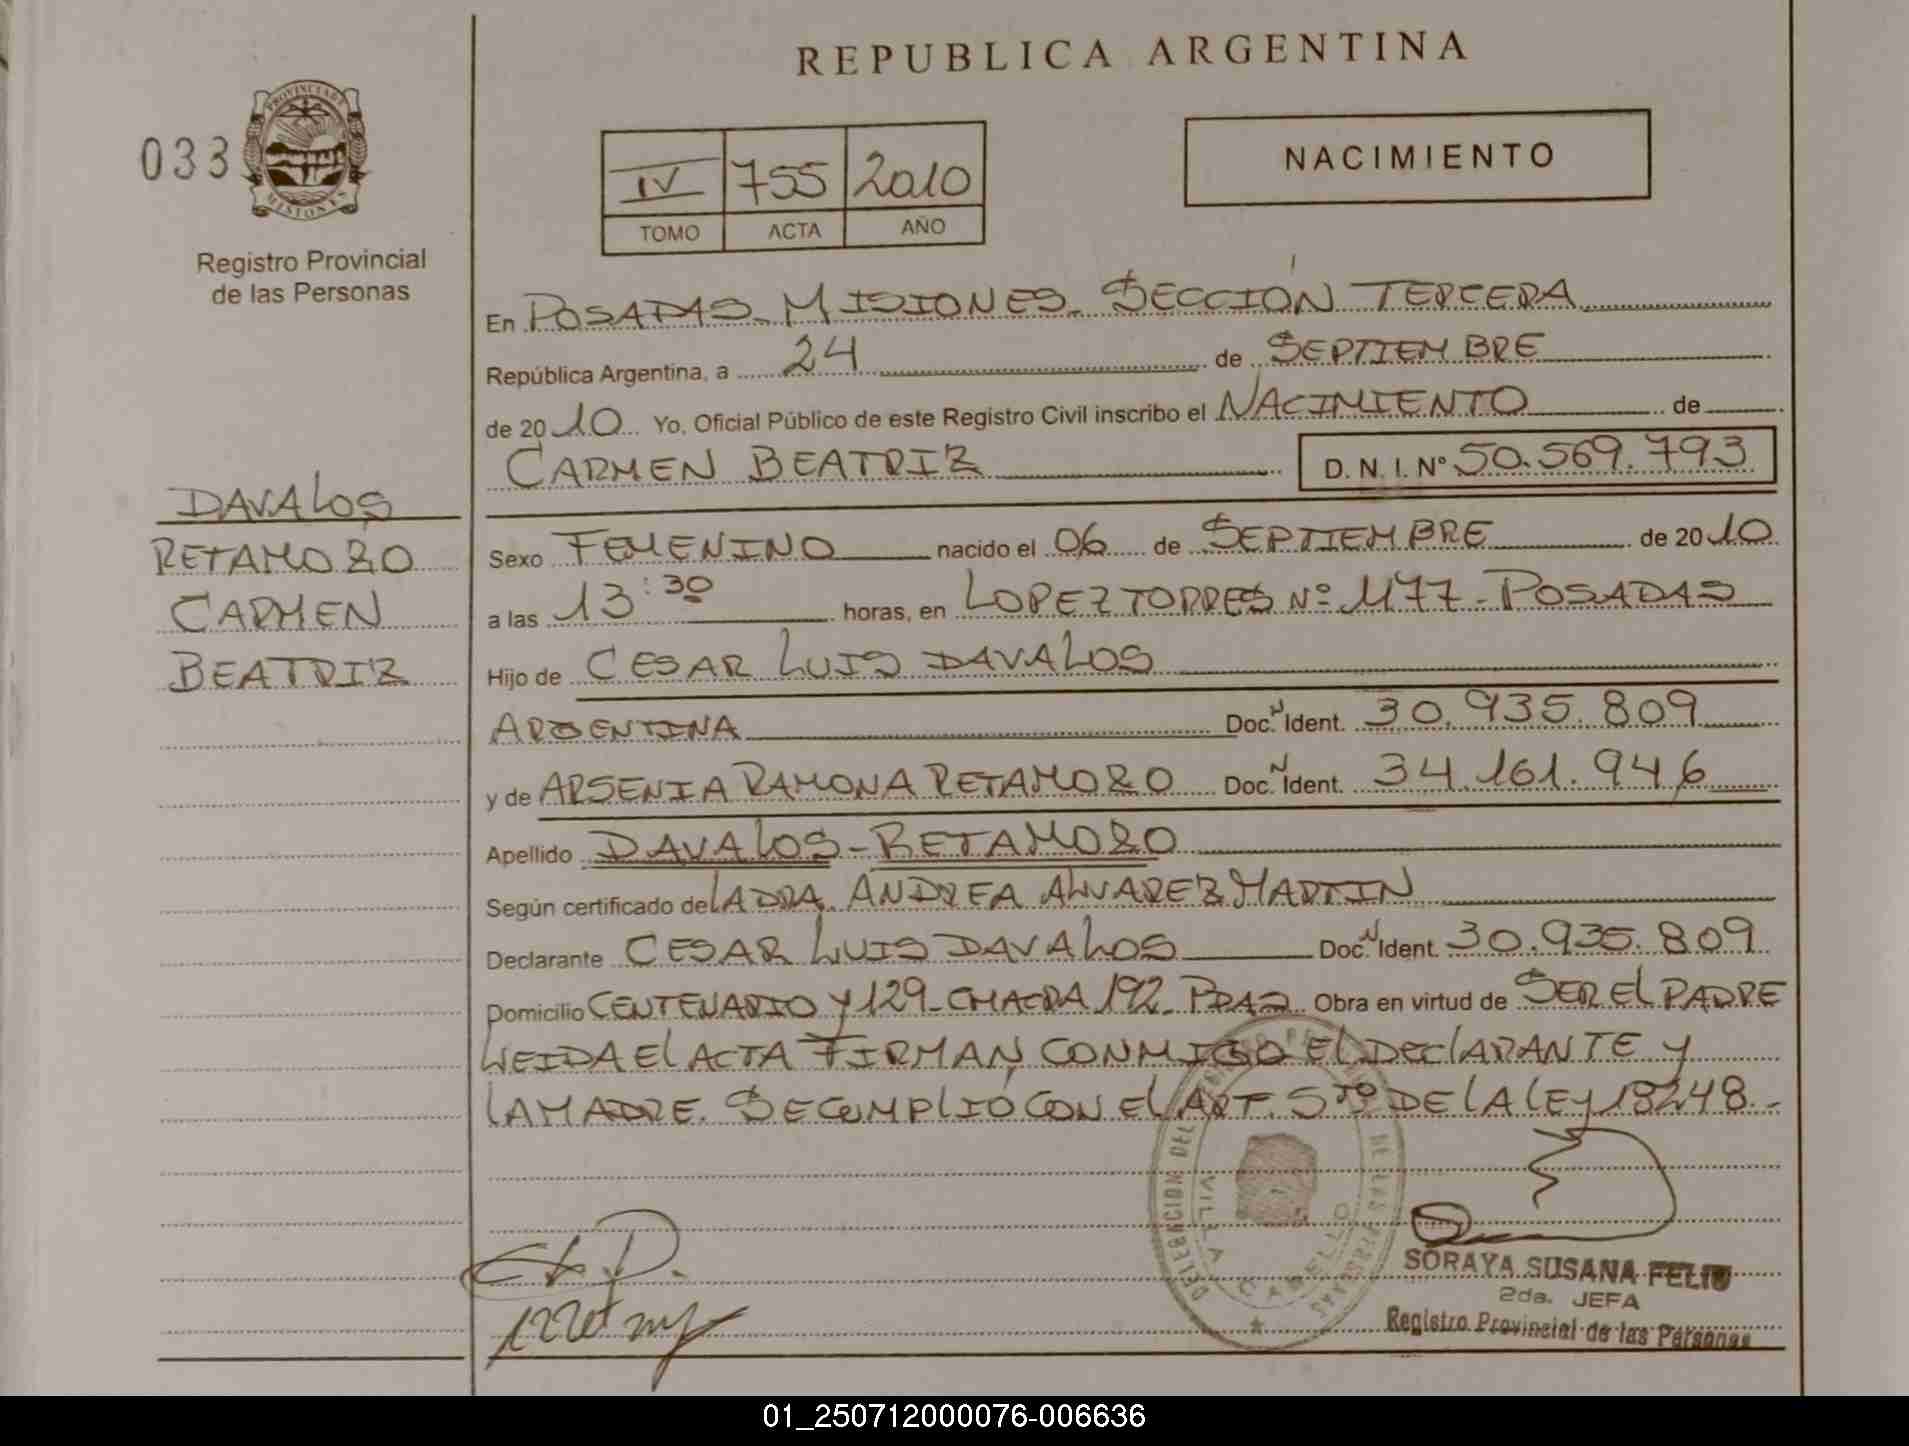 REPUBLICA ARGENTINA
033
PROVINCIA DE
MISIONES
Registro Provincial
de las Personas
IV 755 2010
TOMO ACTA AÑO
NACIMIENTO
En POSADAS - MISIONES - SECCIÓN TERCERA
República Argentina, a 24 de SEPTIEMBRE
de 2010 Yo, Oficial Público de este Registro Civil inscribo el NACIMIENTO de
CARMEN BEATRIZ D. N. I. Nº 50.569.793
DAVALOS
RETAMOZO
CARMEN
BEATRIZ
Sexo FEMENINO nacido el 06 de SEPTIEMBRE de 2010
a las 13:30 horas, en LOPEZ TORRES Nº 1177 - POSADAS
Hijo de CESAR LUIS DAVALOS
ARGENTINA Doc. N Ident. 30.935.809
y de ARSENIA RAMONA RETAMOZO Doc. N Ident. 34.161.946
Apellido DAVALOS - RETAMOZO
Según certificado de LA DRA. ANDREA ALVAREZ MARTIN
Declarante CESAR LUIS DAVALOS Doc. N Ident. 30.935.809
Domicilio CENTENARIO Y 129 - CHACRA 192 - PDAS Obra en virtud de SER EL PADRE
LEIDA EL ACTA FIRMAN CONMIGO EL DECLARANTE Y
LA MADRE. SE CUMPLIÓ CON EL ART. 5to DE LA LEY 18248.-
DELEGACION DEL REGISTRO DE LAS PERSONAS
VILLA CABELLO
SORAYA SUSANA FELIU
2da. JEFA
Registro Provincial de las Personas
01_250712000076-006636